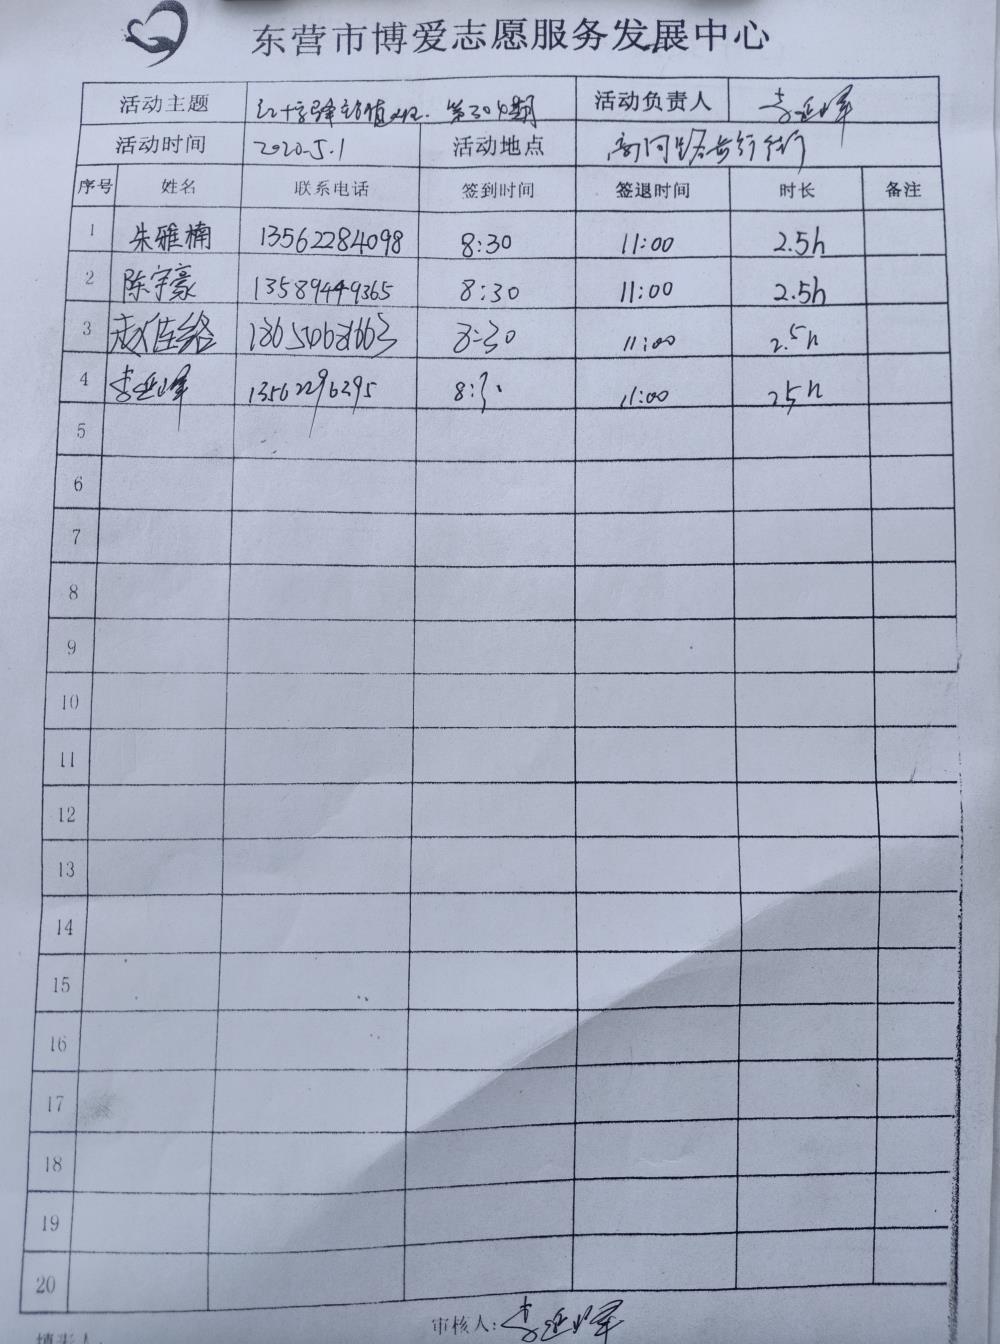 东营市博爱志愿服务发展中心
活动主题 红十字驿站值班. 第30 期 活动负责人 李延峰
活动时间 2020.5.1 活动地点 步行街
序号 姓名 联系电话 签到时间 签退时间 时长 备注
1 朱雅楠 13562284098 8:30 11:00 2.5h
2 陈宇豪 13589449365 8:30 11:00 2.5h
3 8:30 11:00 2.5h
4 李延峰 13562296395 8:30 11:00 2.5h
5
6
7
8
9
10
11
12
13
14
15
16
17
18
19
20
审核人: 李延峰